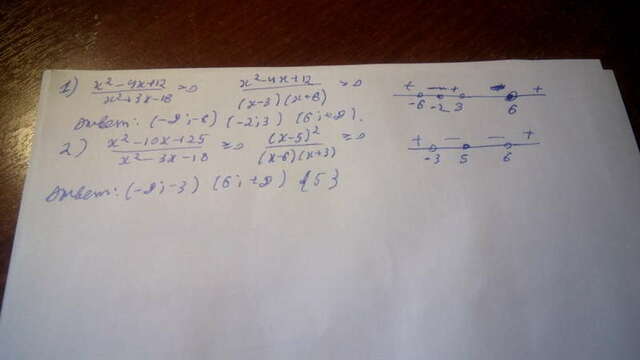 1) x²-4x+12/x²+3x-18 >0 x²-4x+12/(x-3)(x+6) >0 + - + - +
-6 -2 3 6
Ответ: (-∞;-6) (-2;3) (6;+∞).
2) x²-10x+25/x²-3x-18 ≥0 (x-5)²/(x-6)(x+3) ≥0 + - - +
-3 5 6
Ответ: (-∞;-3) (6;+∞) {5}